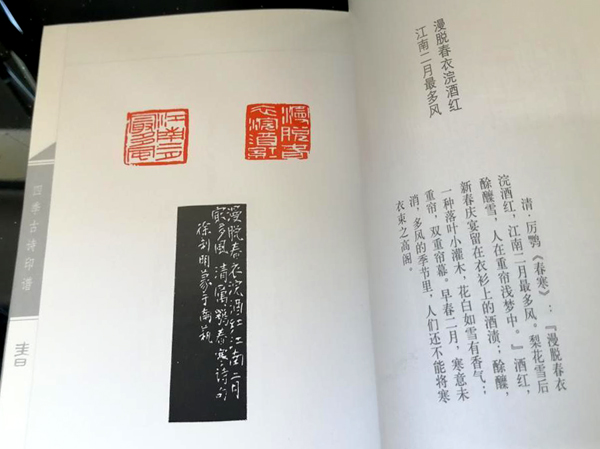 漫脱春衣浣酒红
江南二月最多风
清·厉鹗《春寒》：『漫脱春衣
浣酒红，江南二月最多风。梨花雪后
酴醾雪，人在重帘浅梦中。』酒红，
新春庆宴留在衣衫上的酒渍；酴醾，
一种落叶小灌木，花白如雪有香气；
重帘，双重帘幕。早春二月，寒意未
消，多风的季节里，人们还不能将寒
衣束之高阁。
漫脱春
衣浣酒红
江南二月
最多风
漫脱春衣浣酒红江南二月
最多風 清厲鶚春寒诗句
徐利明
四季古
春